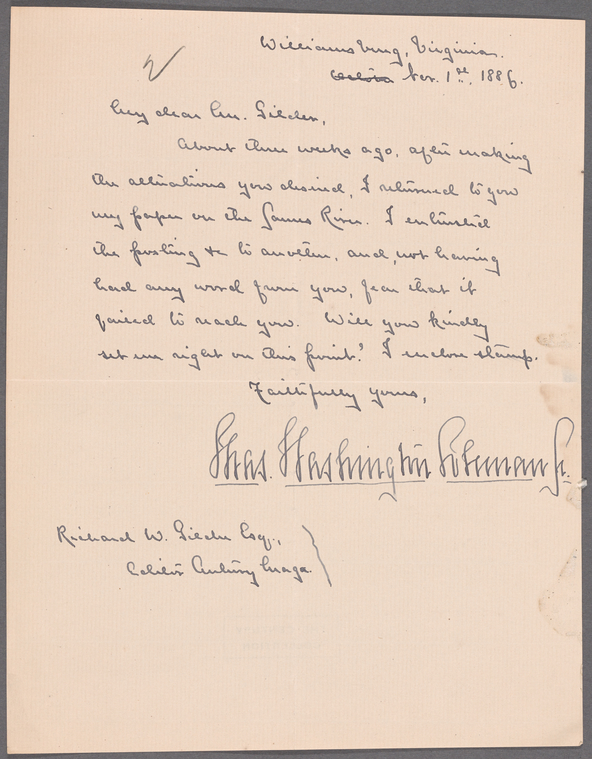 Williamsburg, Virginia.
Nov. 1st. 1886.
2
My dear Mr. Gilder,
About three weeks ago, after making
the alterations you desired, I returned to you
my paper on the James River. I entrusted
the posting &c to another, and, not having
had any word from you, fear that it
failed to reach you. Will you kindly
set me right on this point? I enclose stamp.
Faithfully yours,
Chas. Washington Coleman Jr.
Richard W. Gilder Esq.,
Editor Century Maga.